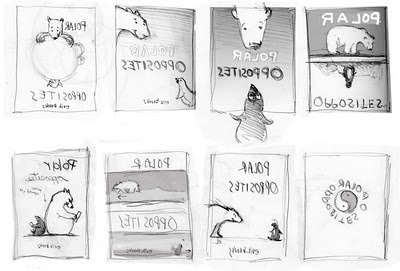 POLAR
OPPOSITES
erik brooks
POLAR
OPPOSITES
erik brooks
POLAR
OPPOSITES
POLAR
OPPOSITES
Polar
opposites
POLAR
OPPOSITES
erik brooks
POLAR
OPPOSITES
erik brooks
POLAR OPPOSITES